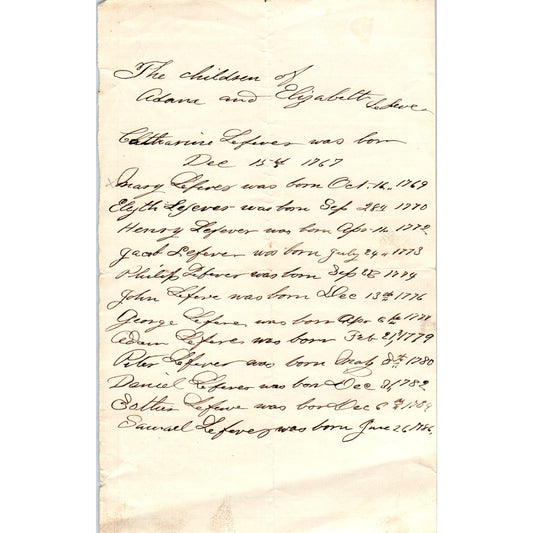 The children of
Adam and Elizabeth Lefever
Catharine Lefever was born
Dec 15th 1767
Mary Lefever was born Oct. 16 1769
Elizth Lefever was born Sep 28th 1770
Henry Lefever was born Apr 1772
Jacob Lefever was born July 24 1773
Philip Lefever was born Sep 1774
John Lefeve was born Dec 13th 1776
George Lefever was born Apr 6th 1778
Adam Lefever was born Feb 1779
Peter Lefever was born May 8th 1780
Daniel Lefever was bor Dec 1782
Lefeve was bor Dec 6th
Samuel Lefever was born June 26 1786